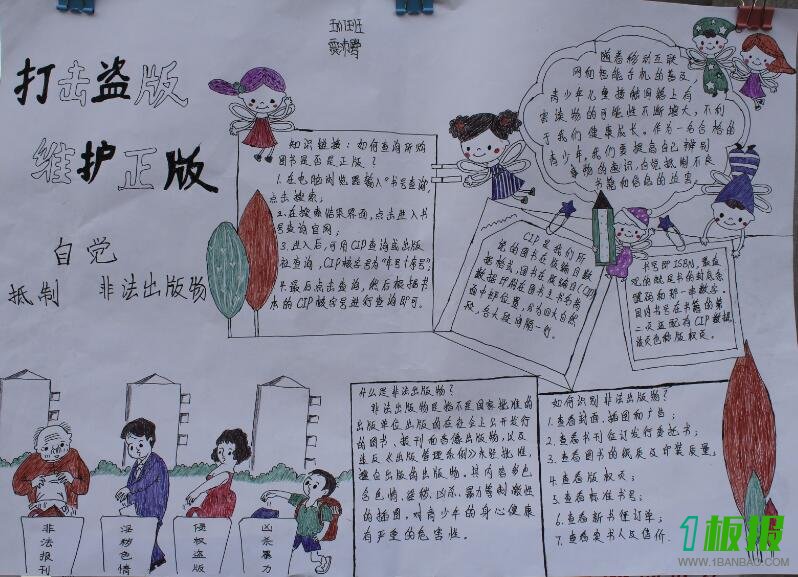 打击盗版
维护正版
自觉
抵制 非法出版物
知识链接：如何查询所购
图书是否是正版？
1.在电脑浏览器输入“书号查询”
点击搜索；
2.在搜索结果界面，点击进入书
号查询官网；
3.进入后，可用CIP查询或出版
社查询，CIP核字号为
4.最后点击查询，然后根据书
本的CIP核字号进行查询即可。
随着移动互联
网和智能手机的普及
青少年儿童接触网络上有
害读物的可能性不断增大，不利
于我们健康成长。作为一名合格的
青少年，我们要提高自己辨别
事物的意识，自觉抵制不良
书籍和信息的迷害。
CIP是我们所
说的图书在版编目数
据格式，图书在版编目(CIP)
数据印用在图书主书名页
的中部位置，分为四大自然
段，各大段间隔一行。
书号即ISBN，最直
观的就是书的封底条
一串数字。
同时书号在书籍的第
二页并配有CIP数据，
该页也称版权页。
什么是非法出版物？
非法出版物是指不是国家批准的
出版单位出版的在社会上公开发行
的图书、报刊和音像出版物，以及
违反《出版管理条例》未经批准，
擅自出版的出版物。其内容多包
含色情、淫秽、凶杀、暴力等刺激性
的插图，对青少年的身心健康
有严重的危害性。
如何识别非法出版物？
1.查看封面、插图和广告；
2.查看书刊征订发行委托书；
3.查看图书的纸质及印装质量；
4.查看版权页；
5.查看标准书号；
6.查看新书征订单；
7.查看卖书人及售价.
非法报刊
淫秽色情
侵权盗版
凶杀暴力
1板报
WWW.1BANBAO.COM